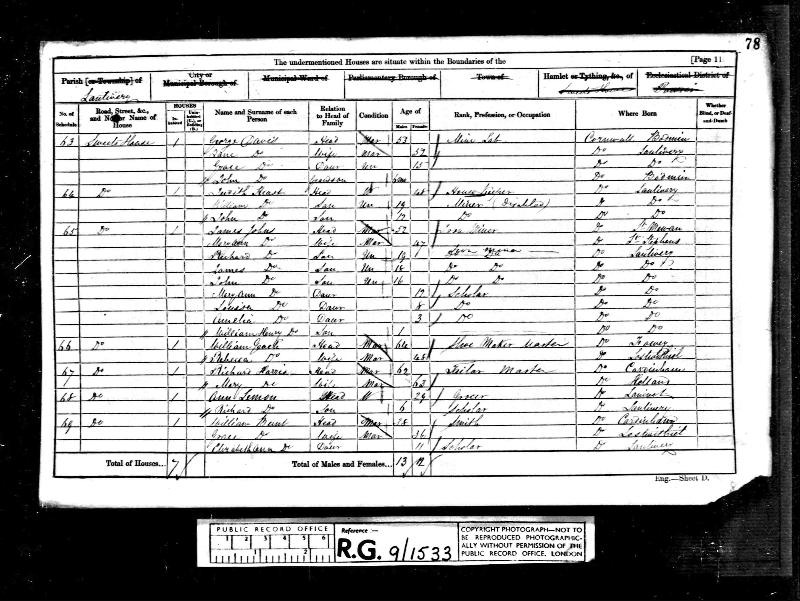 78
The undermentioned Houses are situate within the Boundaries of the [Page 11
Parish [or Township] of City or Municipal Borough of Municipal Ward of Parliamentary Borough of Town of Hamlet or Tything, &c., of Ecclesiastical District of
Lanlivery
No. of Schedule Road, Street, &c., and No. or Name of House HOUSES Inhabited Uninhabited (U.), or Building (B.) Name and Surname of each Person Relation to Head of Family Condition Age of Males Females Rank, Profession, or Occupation Where Born Whether Blind, or Deaf-and-Dumb
63 Sweets House 1 George Head Mar 53 Mine Lab Cornwall Bodmin
Jane Do Wife Mar 57 Do Lanlivery
Grace Do Daur Un 15 Do Do
John Do Grandson Do Bodmin
64 Do 1 Judith Head W 48 House Keeper Do Lanlivery
William Do Son Un 19 Miner (Disabled) Do Do
John Do Son 17 Do Do Do
65 Do 1 James Johns Head Mar 52 Miner Do St Mewan
Mary Ann Do Wife Mar 47 Do St Stephens
Richard Do Son Un 19 Do Lanlivery
James Do Son Un 18 Do Do Do Do
John Do Son Un 16 Do Do Do Do
Mary Ann Do Daur 12 Scholar Do Do
Louisa Do Daur 8 Do Do Do
Amelia Do Daur 3 Do Do Do
William Henry Do Son 1 Do Do
66 Do 1 William Head Mar 64 Shoe Maker Master Do Fowey
Rebecca Do Wife Mar 48 Do
67 Do 1 Richard Harris Head Mar 62 Tailor Master Do Cardinham
Mary Do Wife Mar 63 Do
68 Do 1 Ann Lemon Head W 29 Grocer Do Lanivet
Richard Do Son 6 Scholar Do Lanlivery
69 Do 1 William Bunt Head Mar 38 Smith Do Cardinham
Grace Do Wife Mar 36 Do
Elizabeth Ann Do Daur 11 Scholar Do Lanlivery
Total of Houses... 7 Total of Males and Females... 13 12
Eng.—Sheet D.
PUBLIC RECORD OFFICE
1 2 3 4 5 6
1 2
Reference :-
R.G. 9/1533
COPYRIGHT PHOTOGRAPH—NOT TO BE REPRODUCED PHOTOGRAPHICALLY WITHOUT PERMISSION OF THE PUBLIC RECORD OFFICE, LONDON